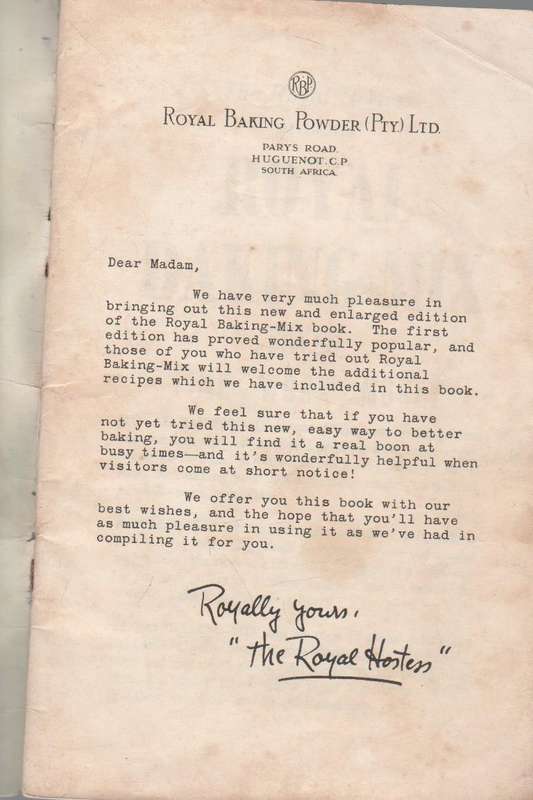 RBP
ROYAL BAKING POWDER (PTY.) LTD.
PARYS ROAD.
HUGUENOT. C.P.
SOUTH AFRICA.
Dear Madam,
We have very much pleasure in
bringing out this new and enlarged edition
of the Royal Baking-Mix book. The first
edition has proved wonderfully popular, and
those of you who have tried out Royal
Baking-Mix will welcome the additional
recipes which we have included in this book.
We feel sure that if you have
not yet tried this new, easy way to better
baking, you will find it a real boon at
busy times—and it's wonderfully helpful when
visitors come at short notice!
We offer you this book with our
best wishes, and the hope that you'll have
as much pleasure in using it as we've had in
compiling it for you.
Royally yours,
"The Royal Hostess"